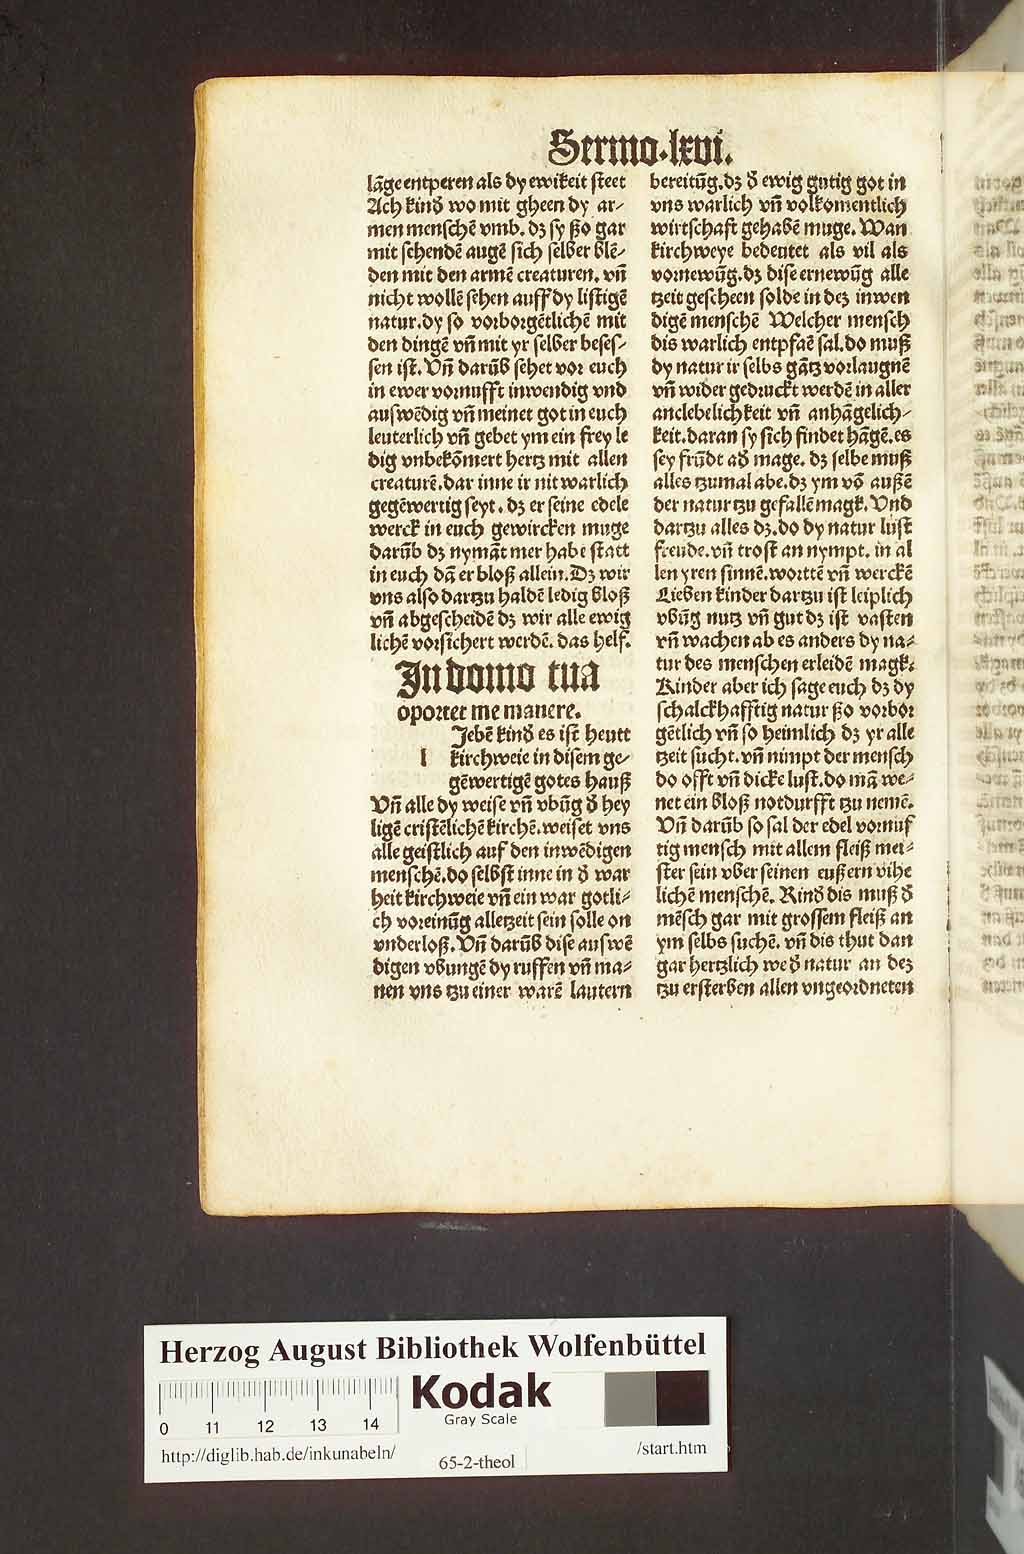 Sermo.lxvi.
lãge entperen als dy ewikeit steet
Ach kind wo mit gheen dy ar-
men menschẽ vmb. dz sy ßo gar
mit sehendẽ augẽ sich selber blẽ-
den mit den armẽ creaturen. vñ
nicht wollẽ sehen auff dy listigẽ
natur. dy so vorborgẽtlichẽ mit
den dingẽ vñ mit yr selber beses-
sen ist. Vñ darũb sehet vor euch
in ewer vornufft inwendig vnd
auswẽdig vñ meinet got in euch
leuterlich vñ gebet ym ein frey le
dig vnbekõmert hertz mit allen
creaturẽ. dar inne ir nit warlich
gegẽwertig seyt. dz er seine edele
werck in euch gewircken muge
darũb dz nymãt mer habe statt
in euch dã er bloß allein. Dz wir
vns also dartzu haldẽ ledig bloß
vñ abgescheidẽ dz wir alle ewig
lichẽ vorsichert werdẽ. das helf.
In domo tua
oportet me manere.
l Jebẽ kind es ist heutt
kirchweie in disem ge-
gẽwertigẽ gotes hauß
Vñ alle dy weise vñ vbũg d hey
ligẽ cristẽlichẽ kirchẽ. weiset vns
alle geistlich auf den inwẽdigen
menschẽ. do selbst inne in d war
heit kirchweie vñ ein war gotli-
ch voreinũg alletzeit sein solle on
vnderloß. Vñ darũb dise auswẽ
digen vbungẽ dy ruffen vñ ma-
nen vns tzu einer warẽ lautern
bereitũg. dz d ewig gutig got in
vns warlich vñ volkomentlich
wirtschaft gehabẽ muge. Wan
kirchweye bedeutet als vil als
vornewũg. dz dise ernewũg alle
tzeit gescheen solde in dez inwen
digẽ menschẽ Welcher mensch
dis warlich entpfaẽ sal. do muß
dy natur ir selbs gãtz vorlaugnẽ
vñ wider gedruckt werdẽ in aller
anclebelichkeit vñ anhãgelich-
keit. daran sy sich findet hãgẽ. es
sey frũdt ad mage. dz selbe muß
alles tzumal abe. dz ym võ außẽ
der natur tzu gefallẽ magk. Vnd
dartzu alles dz. do dy natur lust
freude. vñ trost an nympt. in al
len yren sinnẽ. worttẽ vñ werckẽ
Lieben kinder dartzu ist leiplich
vbũg nutz vñ gut dz ist vasten
vñ wachen ab es anders dy na-
tur des menschen erleidẽ magk.
Kinder aber ich sage euch dz dy
schalckhafftig natur ßo vorbor
gẽtlich vñ so heimlich dz yr alle
tzeit sucht. vñ nimpt der mensch
do offt vñ dicke lust. do mã we-
net ein bloß notdurfft tzu nemẽ.
Vñ darũb so sal der edel vornuf
tig mensch mit allem fleiß mei-
ster sein vber seinen eußern vihe
lichẽ menschẽ. Kind dis muß d
mẽsch gar mit grossem fleiß an
ym selbs suchẽ. vñ dis thut dan
gar hertzlich we d natur an dez
tzu ersterben allen vngeordneten
Herzog August Bibliothek Wolfenbüttel
Kodak
Gray Scale
0 11 12 13 14
http://diglib.hab.de/inkunabeln/
65-2-theol
/start.htm